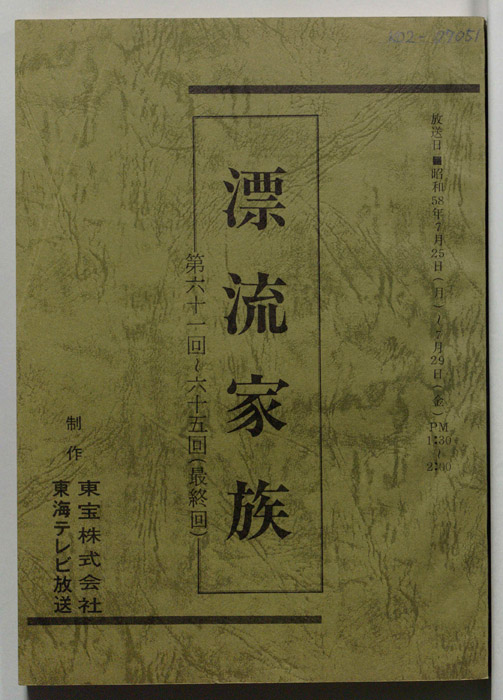 放送日■昭和58年7月25日(月)〜7月29日(金)PM1:30〜2:00
漂流家族
第六十一回〜六十五回(最終回)
制作
東宝株式会社
東海テレビ放送